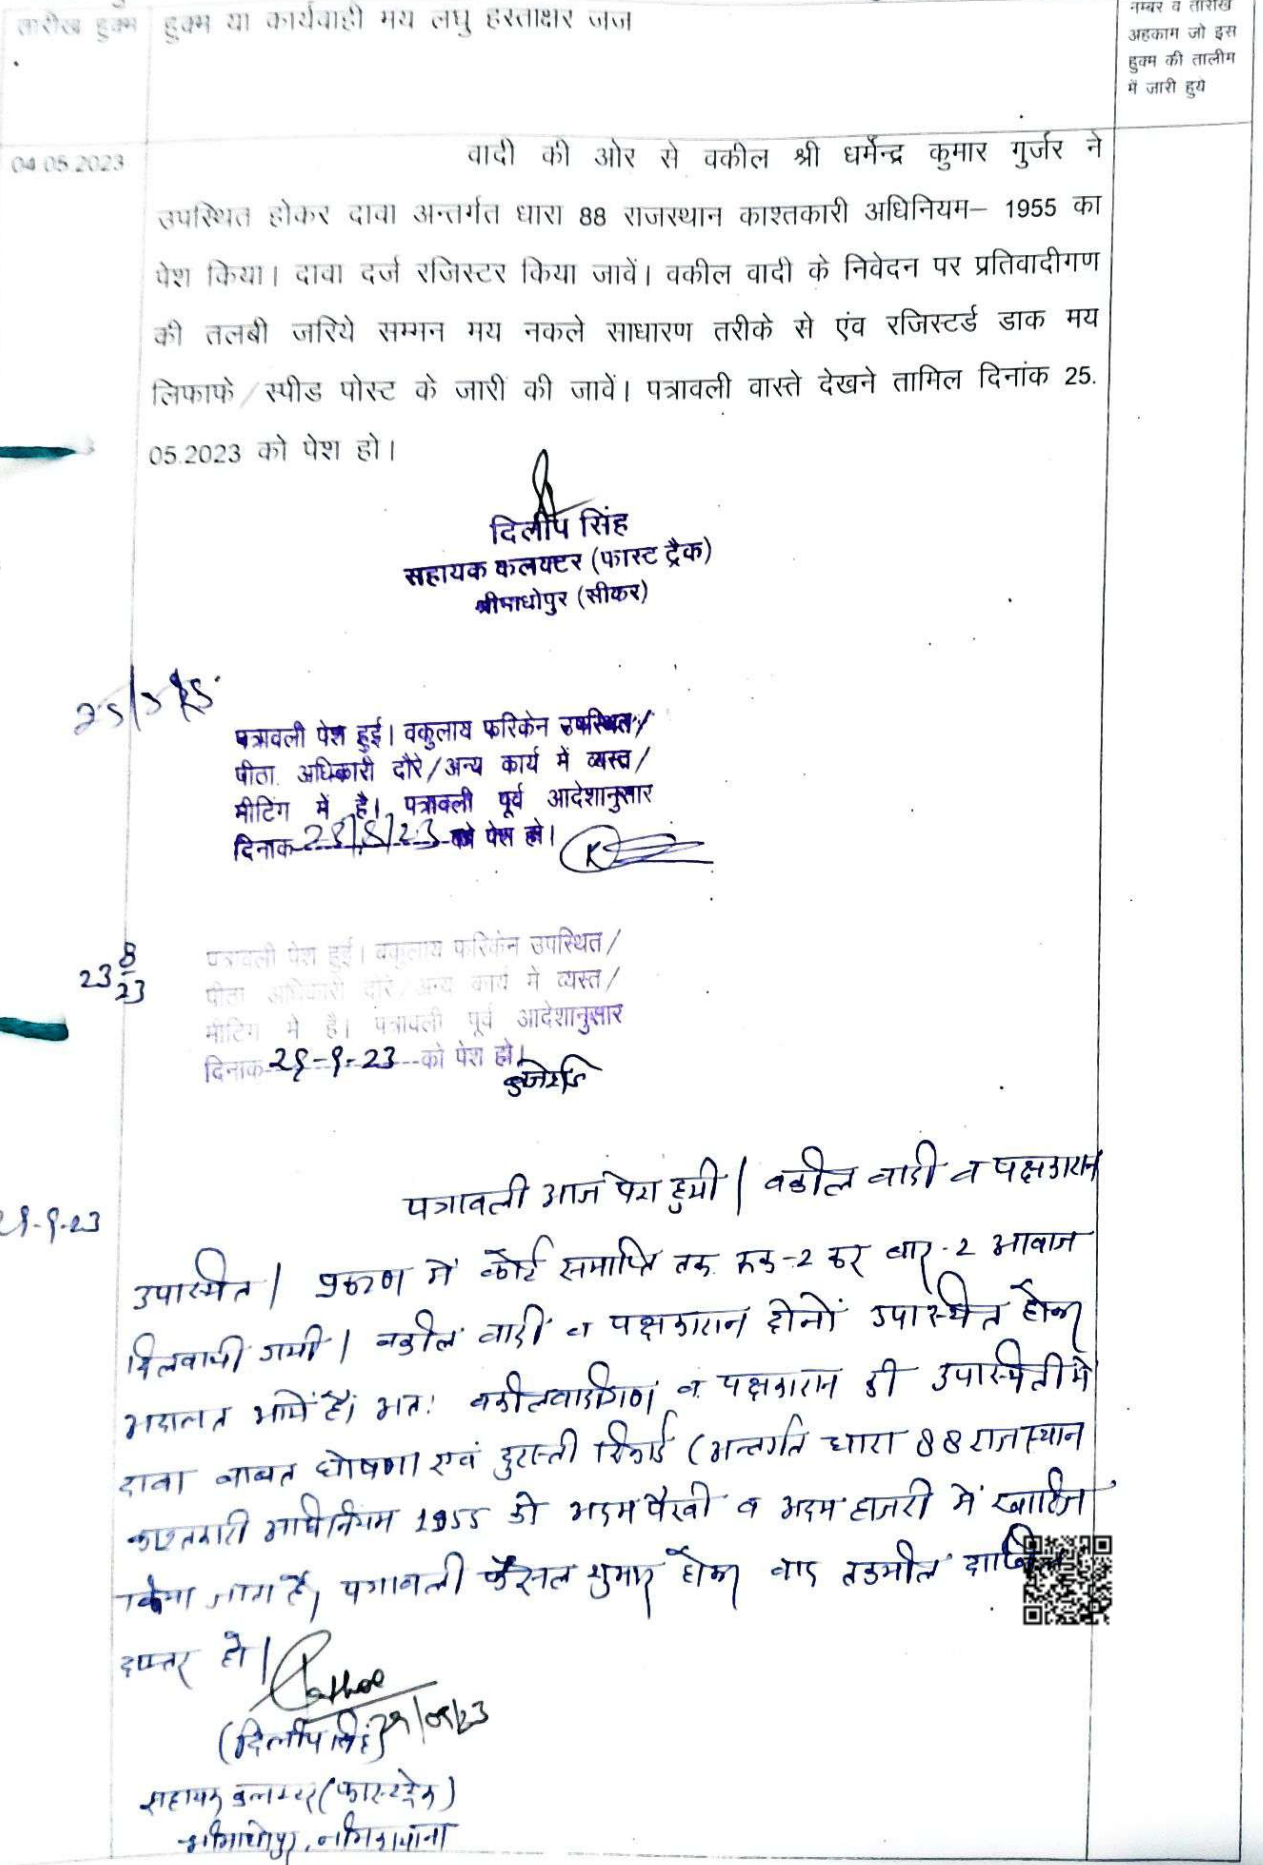 तारीख हुक्म
हुक्म या कार्यवाही मय लघु हस्ताक्षर जज
नम्बर व तारीख
अहकाम जो इस
हुक्म की तालीम
में जारी हुये
04.05.2023
वादी की ओर से वकील श्री धर्मेन्द्र कुमार गुर्जर ने
उपस्थित होकर दावा अन्तर्गत धारा 88 राजस्थान काश्तकारी अधिनियम– 1955 का
पेश किया। दावा दर्ज रजिस्टर किया जावें। वकील वादी के निवेदन पर प्रतिवादीगण
की तलबी जरिये सम्मन मय नकले साधारण तरीके से एंव रजिस्टर्ड डाक मय
लिफाफे/स्पीड पोस्ट के जारी की जावें। पत्रावली वास्ते देखने तामिल दिनांक 25.
05.2023 को पेश हो।
दिलीप सिंह
सहायक कलक्टर (फास्ट ट्रैक)
श्रीमाधोपुर (सीकर)
पत्रावली पेश हुई। वकुलाय फरिकेन उपस्थित/
पीठा. अधिकारी दौरे/अन्य कार्य में व्यस्त/
मीटिंग में है। पत्रावली पूर्व आदेशानुसार
दिनाक 23/8/23 को पेश हो।
23 8/23
पत्रावली पेश हुई। वकुलाय फरिकेन उपस्थित/
पीठा अधिकारी दौरे/अन्य कार्य मे व्यस्त/
मीटिंग मे है। पत्रावली पूर्व आदेशानुसार
दिनाक 29-9-23 को पेश हो।
29-9-23
पत्रावली आज पेश हुयी। वकील वादी व पक्षकारान
उपस्थित। प्रकरण में कोर्ट समाप्ति तक रूक-2 कर बार-2 आवाज
दिलवायी गयी। वकील वादी व पक्षकारान दोनों उपस्थित होकर
अदालत आयें है, अतः वकीलवादीगण व पक्षकारान की उपस्थिती में
दावा बाबत घोषणा एवं दुरस्ती रिकार्ड (अन्तर्गत धारा 88 राजस्थान
काश्तकारी अधिनियम 1955 को अदम पैरवी व अदम हाजरी में खारिज
किया जाता है, पत्रावली फैसल शुमार होकर बाद तकमील दाखिल
दफ्तर हो।
(दिलीप सिंह) 29/09/23
सहायक कलक्टर (फास्ट ट्रैक)
श्रीमाधोपुर, नीमकाथाना